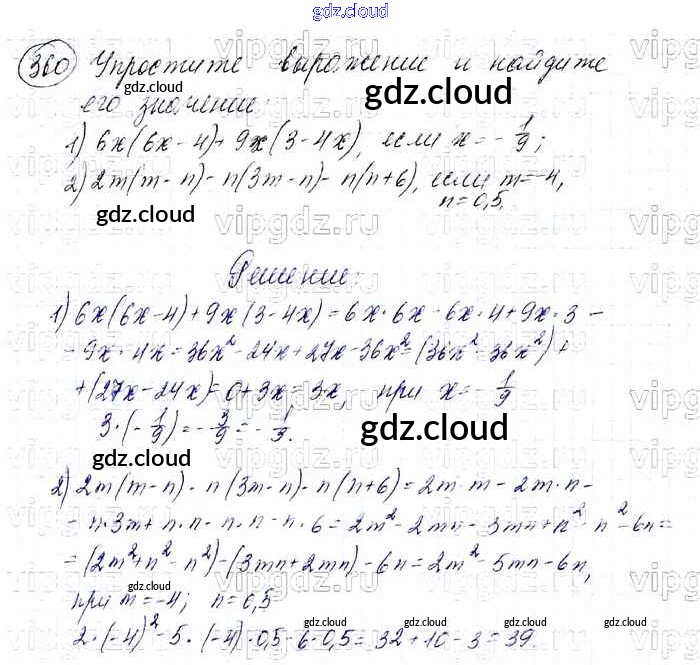 gdz.cloud
360 Упростите выражение и найдите
его значение:
gdz.cloud
1) 6x(6x-4)+9x(3-4x), если x=-1/9;
2) 2m(m-n)-n(3m-n)-n(n+6), если m=-4,
gdz.cloud n=0,5.
Решение:
1) 6x(6x-4)+9x(3-4x)=6x·6x-6x·4+9x·3-
-9x·4x=36x²-24x+27x-36x²=(36x²-36x²)+
+(27x-24x)=0+3x=3x, при x=-1/9
3·(-1/9)=-3/9=-1/3.
gdz.cloud
2) 2m(m-n)-n(3m-n)-n(n+6)=2m·m-2m·n-
-n·3m+n·n-n·n-n·6=2m²-2mn-3mn+n²-n²-6n=
=(2m²+n²-n²)-(3mn+2mn)-6n=2m²-5mn-6n,
gdz.cloud
при m=-4; n=0,5
gdz.cloud gdz.cloud
2·(-4)²-5·(-4)·0,5-6·0,5=32+10-3=39.
gdz.cloud gdz.cloud
vipgdz.ru